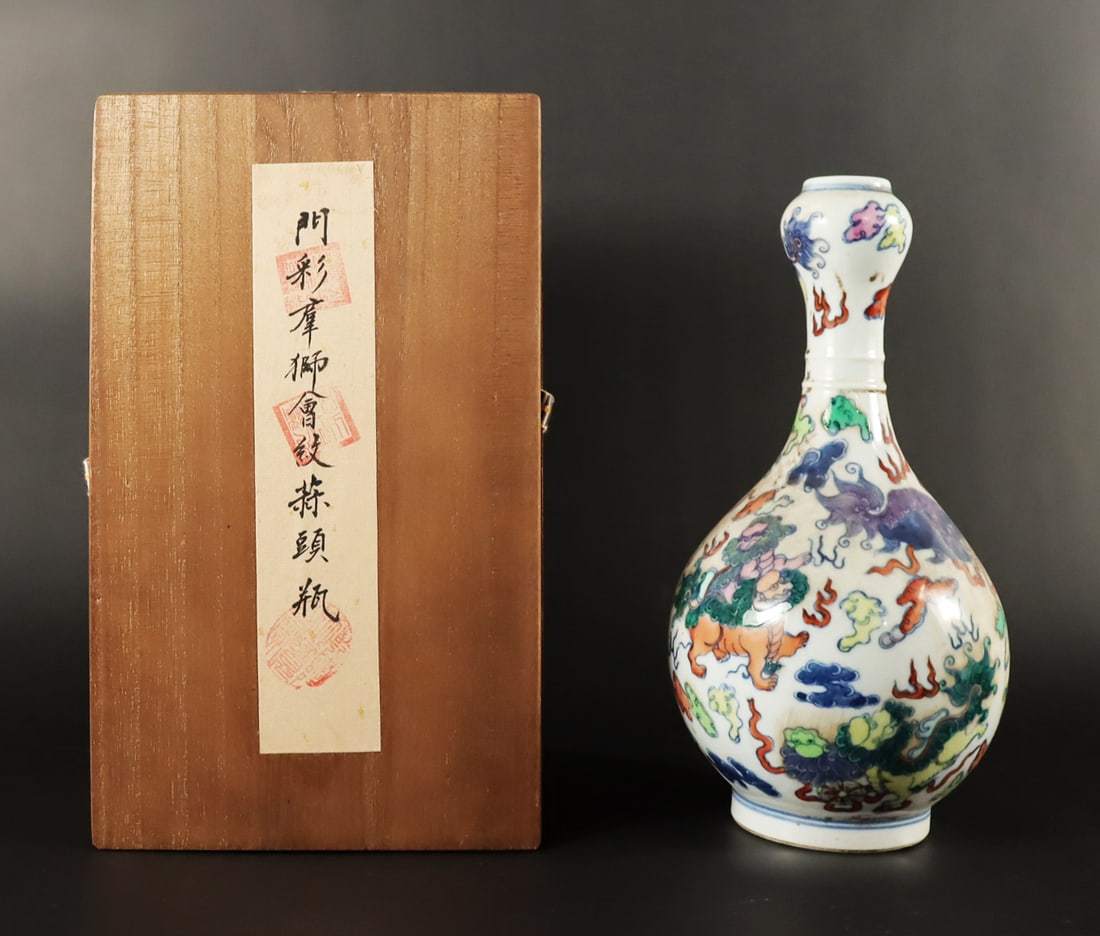 門彩羣獅會紋蒜頭瓶